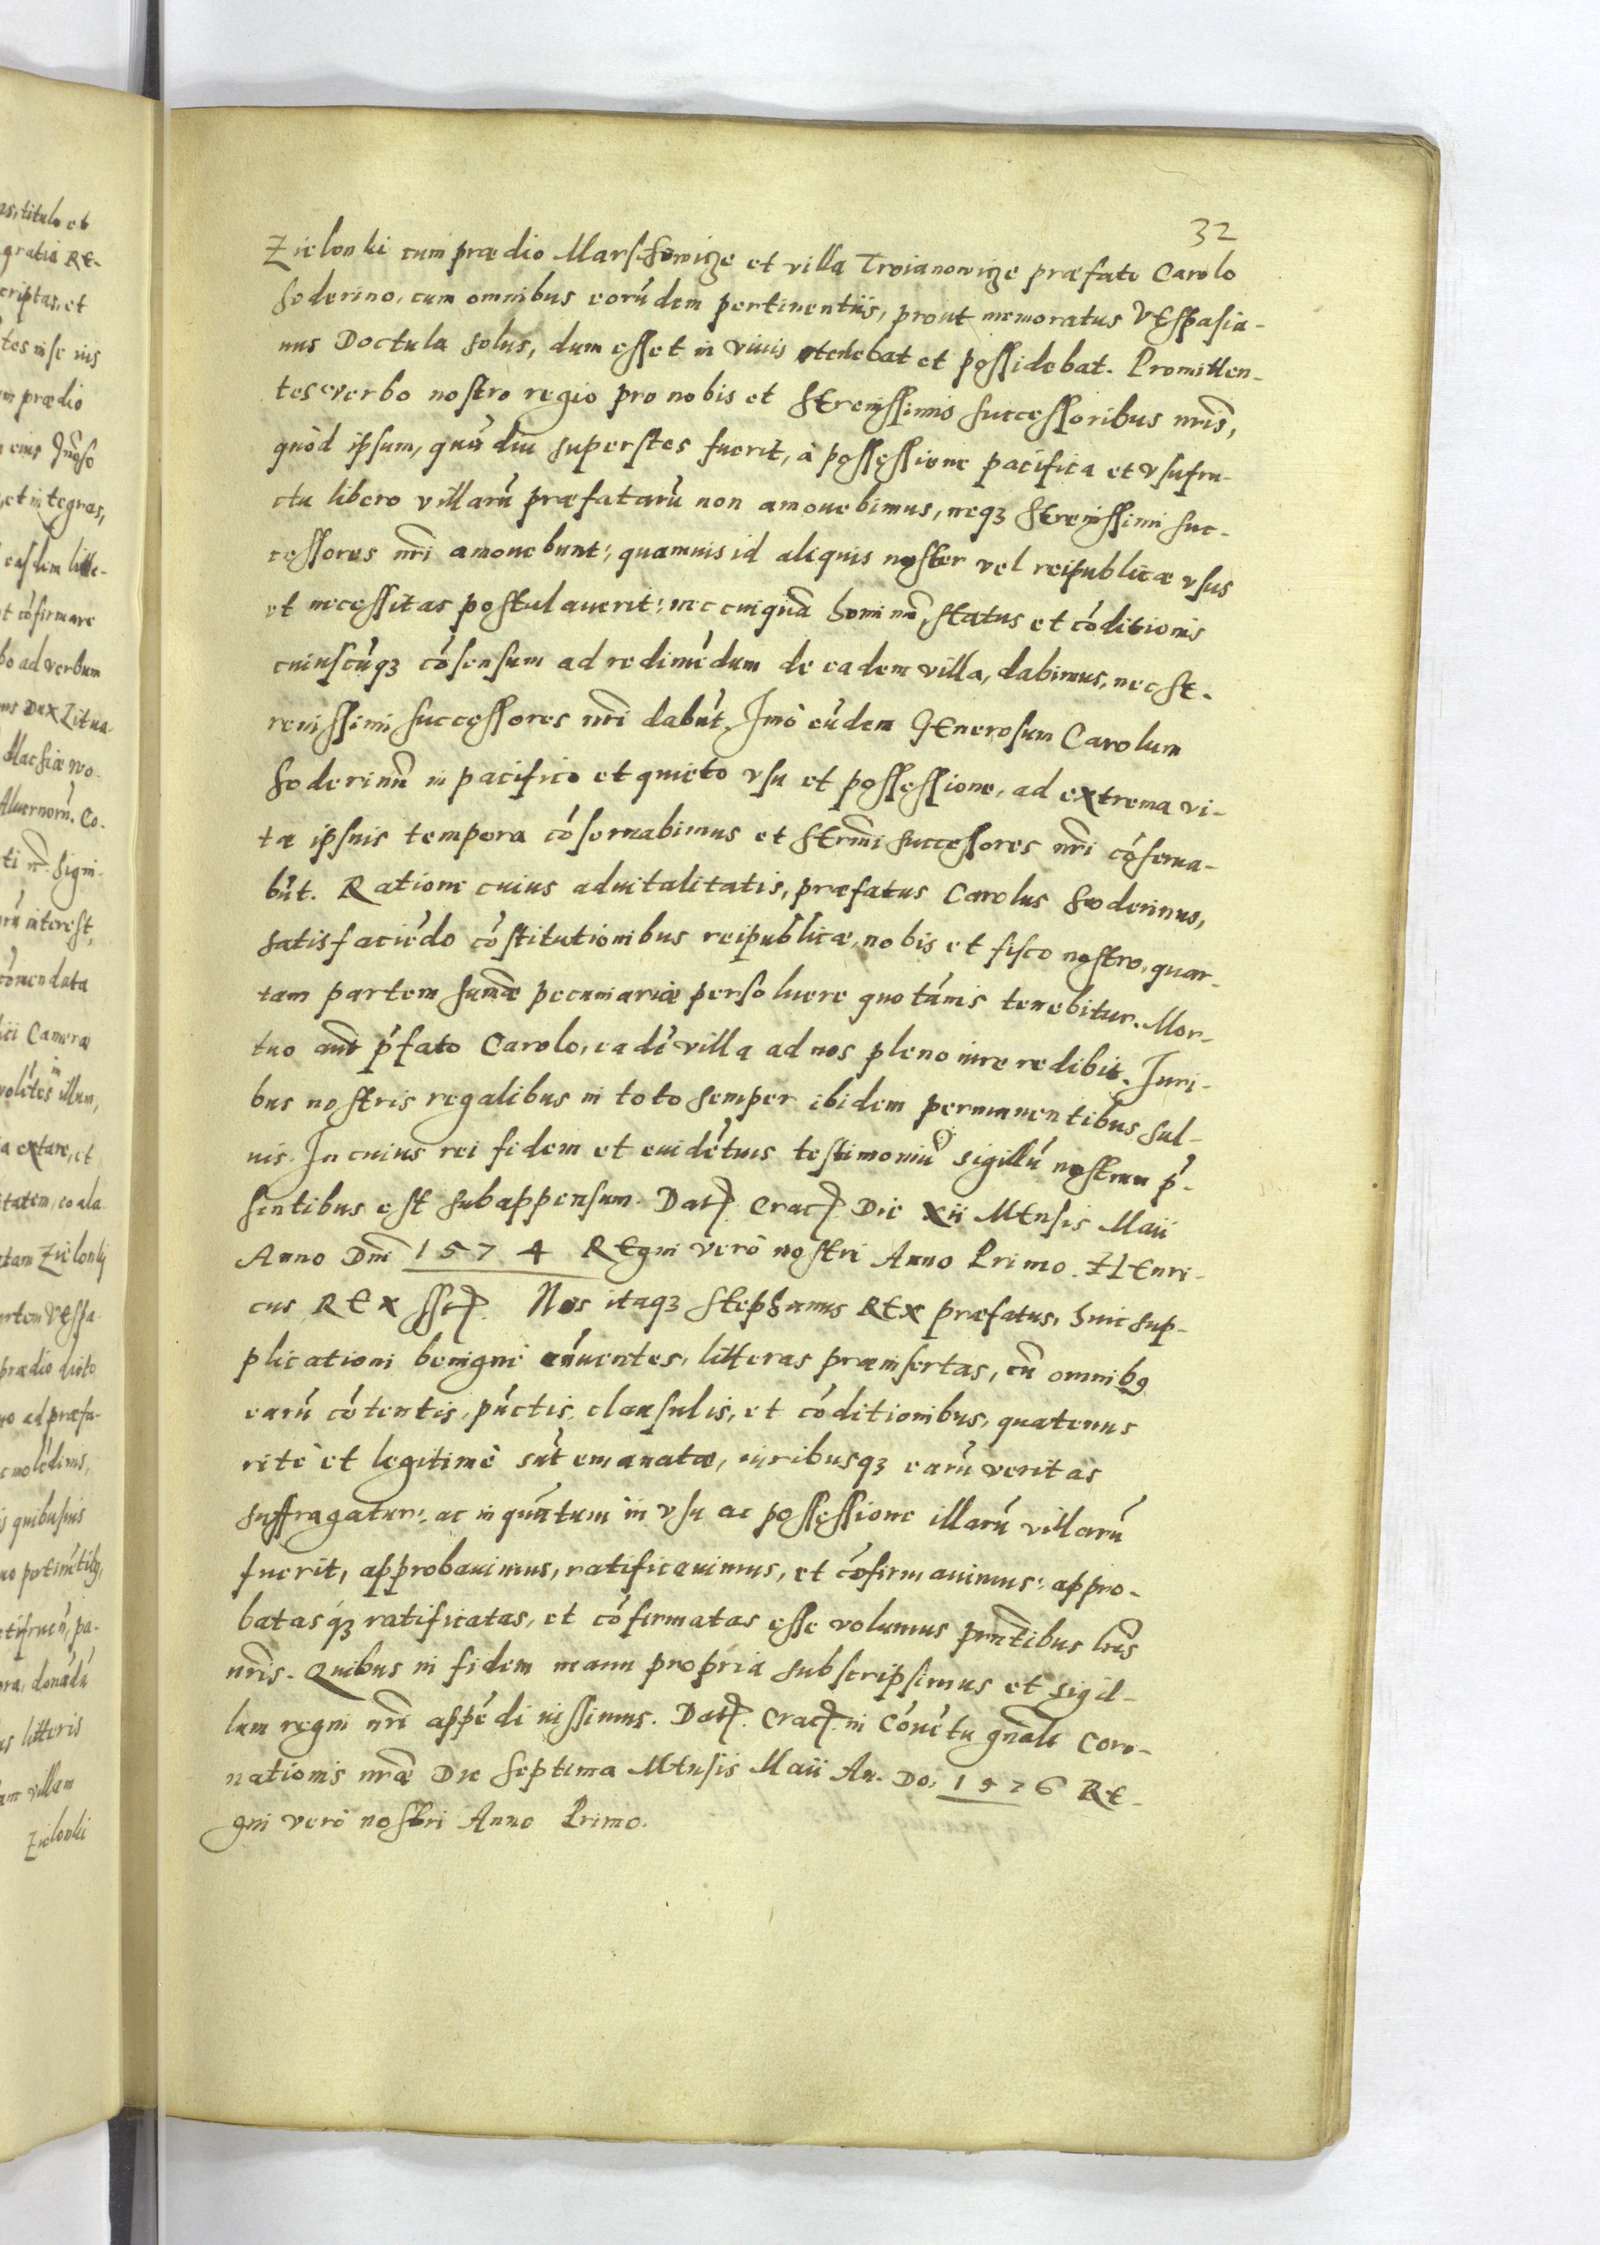 32
Zielonki cum prædio Marschowicze et villa Troianowicze præfato Carolo
Soderino, cum omnibus eorũdem pertinentiis, prout memoratus Vespasia-
nus Doctula solus, dum esset in viuis tenebat et possidebat. Promitten-
tes verbo nostro regio pro nobis et Serenissimis successoribus nr̃is,
quòd ipsum, quã diu superstes fuerit, à possessione pacifica et vsufru-
ctu libero villarũ præfatarũ non amouebimus, neqꝫ Serenissimi suc-
cessores nr̃i amouebunt: quamuis id aliquis noster vel reipublicæ vsus
et necessitas postulauerit: nec cuiquã hominũ, status et cõditionis
cuiuscũqꝫ cõsensum ad redimẽdum de eadem villa, dabimus, nec Se-
renissimi successores nr̃i dabũt. Imò eũdem Generosum Carolum
Soderinũ in pacifico et quieto vsu et possessione, ad extrema vi-
tæ ipsius tempora cõseruabimus et Serm̃i successores nr̃i cõserua-
bũt. Ratione cuius aduitalitatis, præfatus Carolus Soderinus,
satisfaciẽdo cõstitutionibus reipublicæ, nobis et fisco nostro, quar-
tam partem sum̃æ pecuniariæ persoluere quotãnis tenebitur. Mor-
tuo aũt p̃fato Carolo, eadẽ villa ad nos pleno iure redibit. Iuri-
bus nostris regalibus in toto semper ibidem permanentibus sal-
uis. In cuius rei fidem et euidẽtius testimoniũ sigillũ nostrum p̃-
sentibus est subappensum. Datꝭ. Cracꝭ. Die xii Mensis Maii
Anno Dn̄i 1574 Regni verò nostri Anno Primo. Henri-
cus Rex sstꝭ. Nos itaqꝫ Stephanus Rex præfatus, huic sup-
plicationi benignè ãnuentes, litteras præinsertas, cũ omnibꝯ
earũ cõtentis, pũctis, clausulis, et cõditionibus, quatenus
ritè et legitimè sũt emanatæ, iuribusqꝫ earũ veritas
suffragatur: ac in quãtum in vsu ac possessione illarũ villarũ
fuerit, approbauimus, ratificauimus, et cõfirmauimus: appro-
batasqꝫ ratificatas, et cõfirmatas esse volumus pn̄tibus lr̃is
nr̃is. Quibus in fidem manu propria subscripsimus et sigil-
lum regni nr̃i appẽdi iussimus. Datꝭ. Cracꝭ. in Cõuẽtu gñali Coro-
nationis nr̃æ Die Septima Mensis Maii An. Do. 1576 Re-
gni verò nostri Anno Primo.